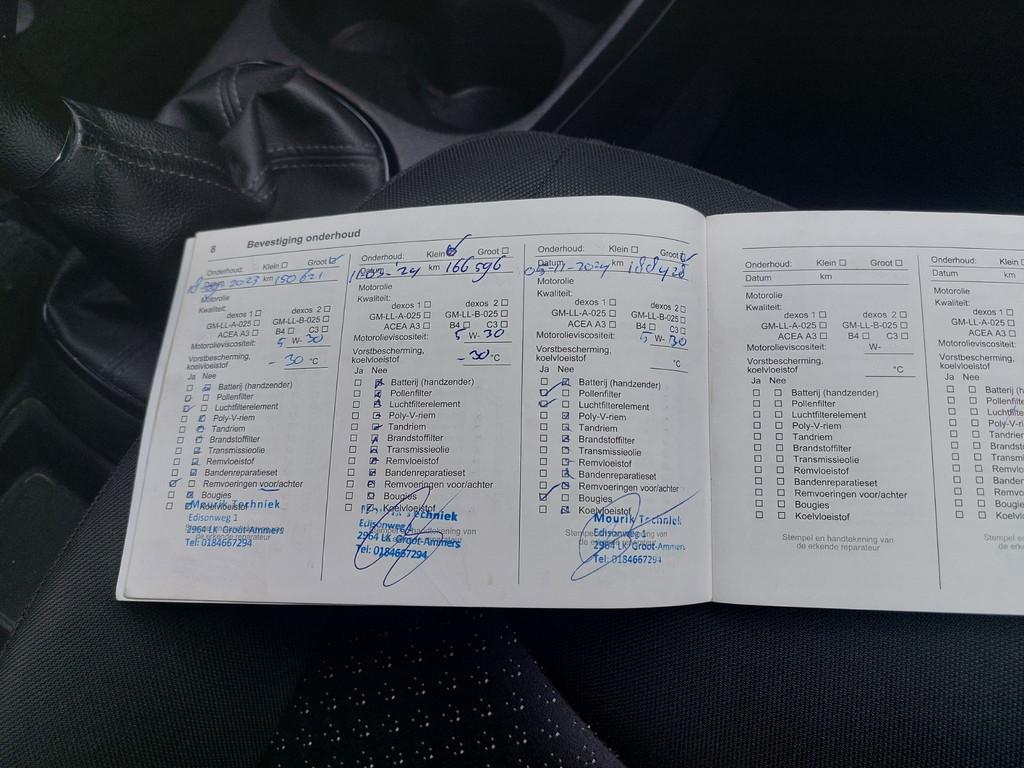 8 Bevestiging onderhoud
Onderhoud: Klein ☐ Groot ☑
2023 km 150 621
Motorolie
Kwaliteit:
dexos 1 ☐ dexos 2 ☐
GM-LL-A-025 ☐ GM-LL-B-025 ☐
ACEA A3 ☐ B4 ☐ C3 ☐
Motorolieviscositeit: 5 W- 30
Vorstbescherming,
koelvloeistof - 30 °C
Ja Nee
Batterij (handzender)
Pollenfilter
Luchtfilterelement
Poly-V-riem
Tandriem
Brandstoffilter
Transmissieolie
Remvloeistof
Bandenreparatieset
Remvoeringen voor/achter
Bougies
Koelvloeistof
Mourik Techniek
Edisonweg 1
2964 LK Groot-Ammers
Tel: 0184667294
Onderhoud: Klein ☑ Groot ☐
Datum '24 km 166 596
Motorolie
Kwaliteit:
dexos 1 ☐ dexos 2 ☐
GM-LL-A-025 ☐ GM-LL-B-025 ☐
ACEA A3 ☐ B4 ☐ C3 ☐
Motorolieviscositeit: 5 W- 30
Vorstbescherming,
koelvloeistof - 30 °C
Ja Nee
Batterij (handzender)
Pollenfilter
Luchtfilterelement
Poly-V-riem
Tandriem
Brandstoffilter
Transmissieolie
Remvloeistof
Bandenreparatieset
Remvoeringen voor/achter
Bougies
Koelvloeistof
Techniek
Edisonweg 1
2964 LK Groot-Ammers
Tel: 0184667294
Onderhoud: Klein ☐ Groot ☑
05-11-2024 km 188428
Motorolie
Kwaliteit:
dexos 1 ☐ dexos 2 ☐
GM-LL-A-025 ☐ GM-LL-B-025 ☐
ACEA A3 ☐ B4 ☐ C3 ☐
Motorolieviscositeit: 5 W- 30
Vorstbescherming,
koelvloeistof °C
Ja Nee
Batterij (handzender)
Pollenfilter
Luchtfilterelement
Poly-V-riem
Tandriem
Brandstoffilter
Transmissieolie
Remvloeistof
Bandenreparatieset
Remvoeringen voor/achter
Bougies
Koelvloeistof
Mourik Techniek
Edisonweg 1
2964 LK Groot-Ammers
Tel: 0184667294
Onderhoud: Klein ☐ Groot ☐
Datum km
Motorolie
Kwaliteit:
dexos 1 ☐ dexos 2 ☐
GM-LL-A-025 ☐ GM-LL-B-025 ☐
ACEA A3 ☐ B4 ☐ C3 ☐
Motorolieviscositeit: W-
Vorstbescherming,
koelvloeistof °C
Ja Nee
☐ ☐ Batterij (handzender)
☐ ☐ Pollenfilter
☐ ☐ Luchtfilterelement
☐ ☐ Poly-V-riem
☐ ☐ Tandriem
☐ ☐ Brandstoffilter
☐ ☐ Transmissieolie
☐ ☐ Remvloeistof
☐ ☐ Bandenreparatieset
☐ ☐ Remvoeringen voor/achter
☐ ☐ Bougies
☐ ☐ Koelvloeistof
Stempel en handtekening van
de erkende reparateur
Onderhoud: Klein
Datum km
Motorolie
Kwaliteit:
dexos 1
GM-LL-A-025
ACEA A3
Motorolieviscositeit
Vorstbescherming,
koelvloeistof
Ja Nee
Batterij (h
Pollenfilte
Luchtfilte
Poly-V-ri
Tandrie
Brandst
Transmi
Remvlo
Banden
Remvoe
Bougies
Koelvlo
Stempel e
de er